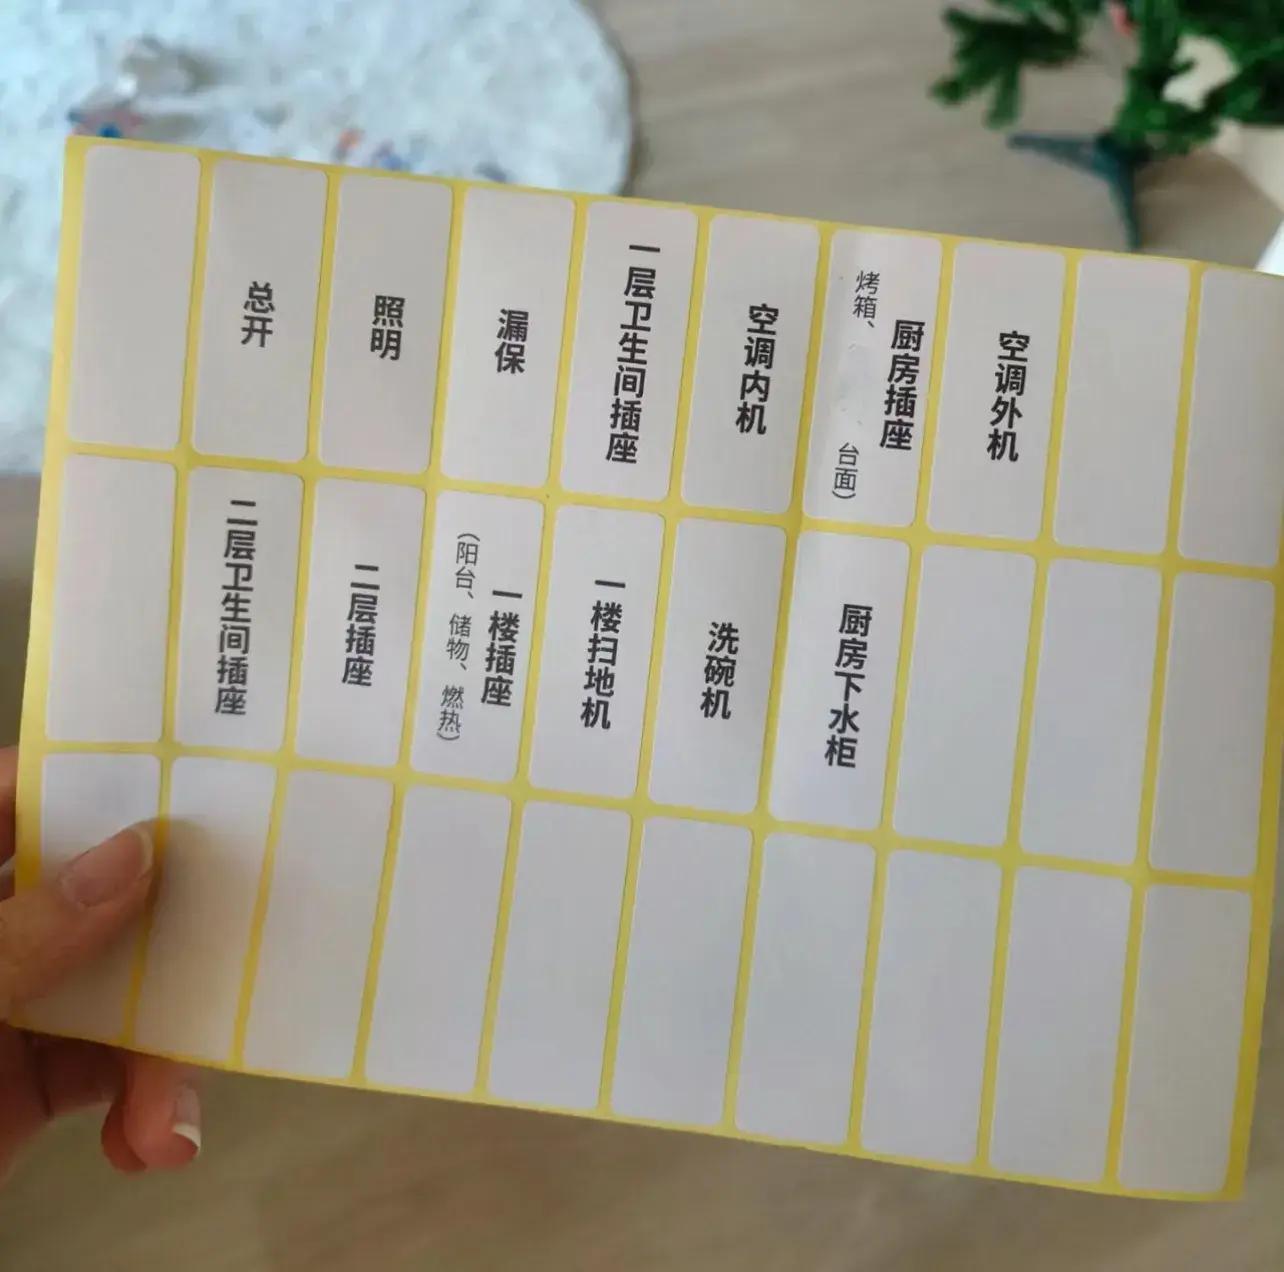 总开
照明
漏保
一层卫生间插座
空调内机
厨房插座
烤箱、
台面）
空调外机
二层卫生间插座
二层插座
一楼插座
（阳台、储物、燃热）
一楼扫地机
洗碗机
厨房下水柜